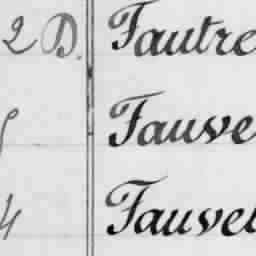 2 D. Fautre
Fauve
4 Fauvel